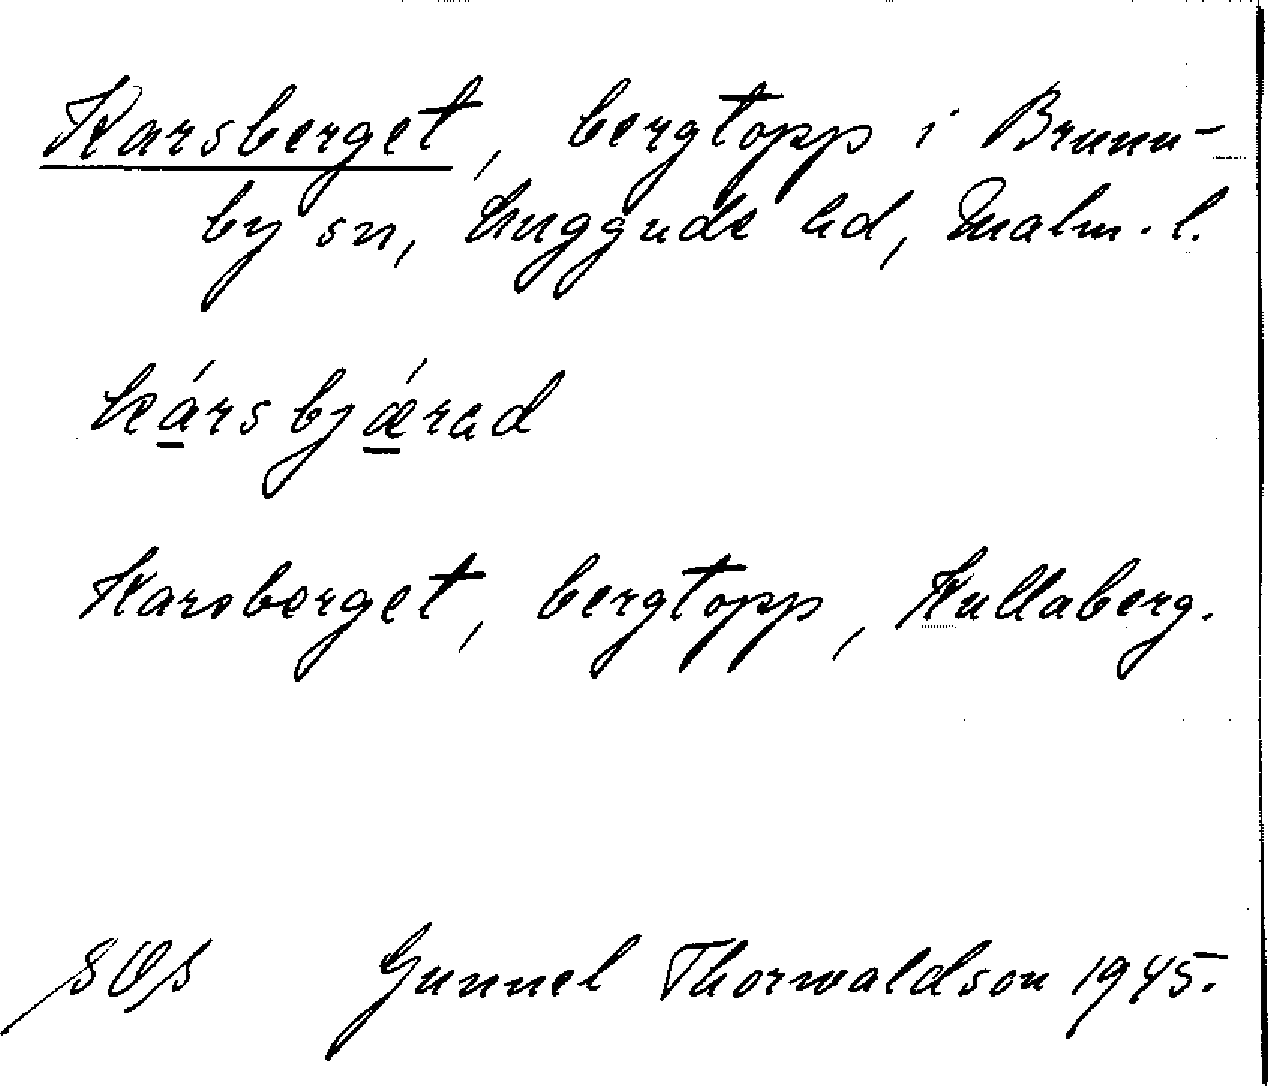 Karsberget, bergtopp i Brunn-
by sn, Luggude hd, Malm. l.
kársbjǽrad
Karsberget, bergtopp, Kullaberg.
Gunnel Thorwaldson 1945.